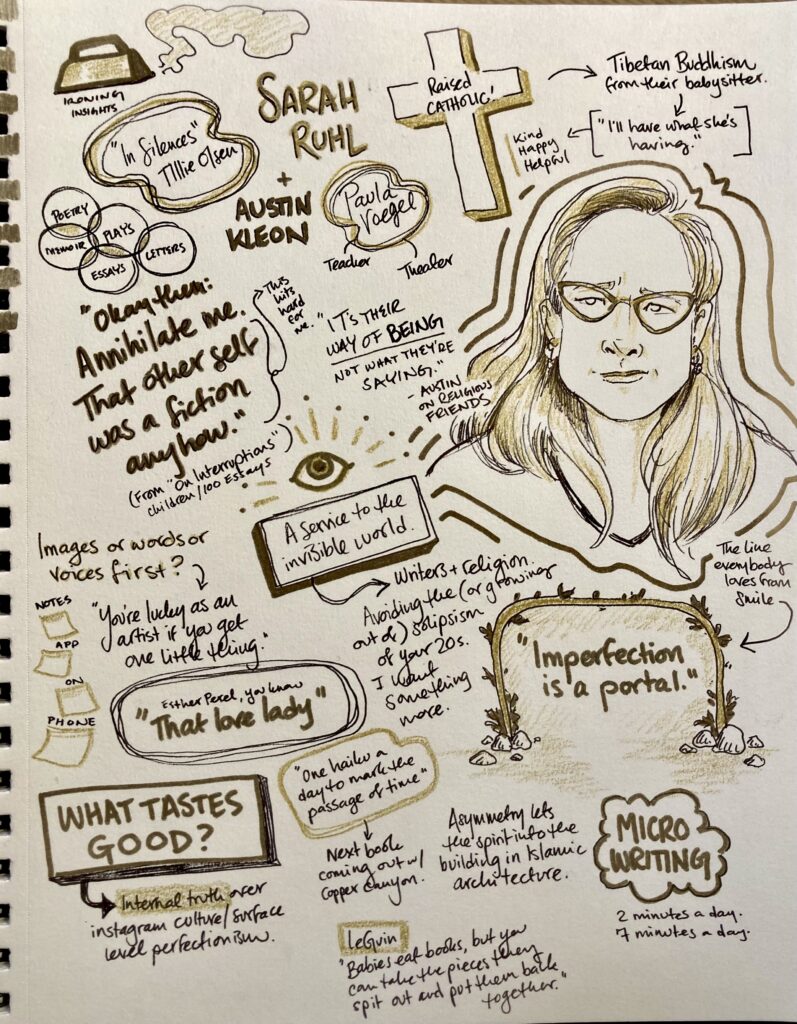 IRONING
INSIGHTS
SARAH
RUHL
+
AUSTIN
KLEON
"In Silences"
Tillie Olsen
POETRY
PLAYS
MEMOIR
LETTERS
ESSAYS
Paula
Voegel
Teacher
Theater
Raised
CATHOLIC!
Tibetan Buddhism
from their babysitter.
"I'll have what she's
having."
Kind
Happy
Helpful
"Okay then:
Annihilate me.
That other self
was a fiction
anyhow."
This
hits
hard
for
me.
(From "On Interruptions"
children/100 Essays
"IT'S THEIR
WAY OF BEING
NOT WHAT THEY'RE
SAYING."
- AUSTIN
ON RELIGIOUS
FRIENDS
A service to the
invisible world.
Writers + religion.
Avoiding the (or growing
out of) solipsism
of your 20s.
I want
something
more.
Images or words or
voices first?
"You're lucky as an
artist if you get
one little thing."
NOTES
APP
ON
PHONE
Esther Perel, you know
"That love lady"
The line
everybody
loves from
Smile
"Imperfection
is a portal."
"One haiku a
day to mark the
passage of time"
Next book
coming out w/
Copper Canyon.
WHAT TASTES
GOOD?
Internal truth over
instagram culture/surface
level perfectionism.
Asymmetry lets
the spirit into the
building in Islamic
architecture.
MICRO
WRITING
2 minutes a day.
7 minutes a day.
LeGuin
"Babies eat books, but you
can take the pieces they
spit out and put them back
together."